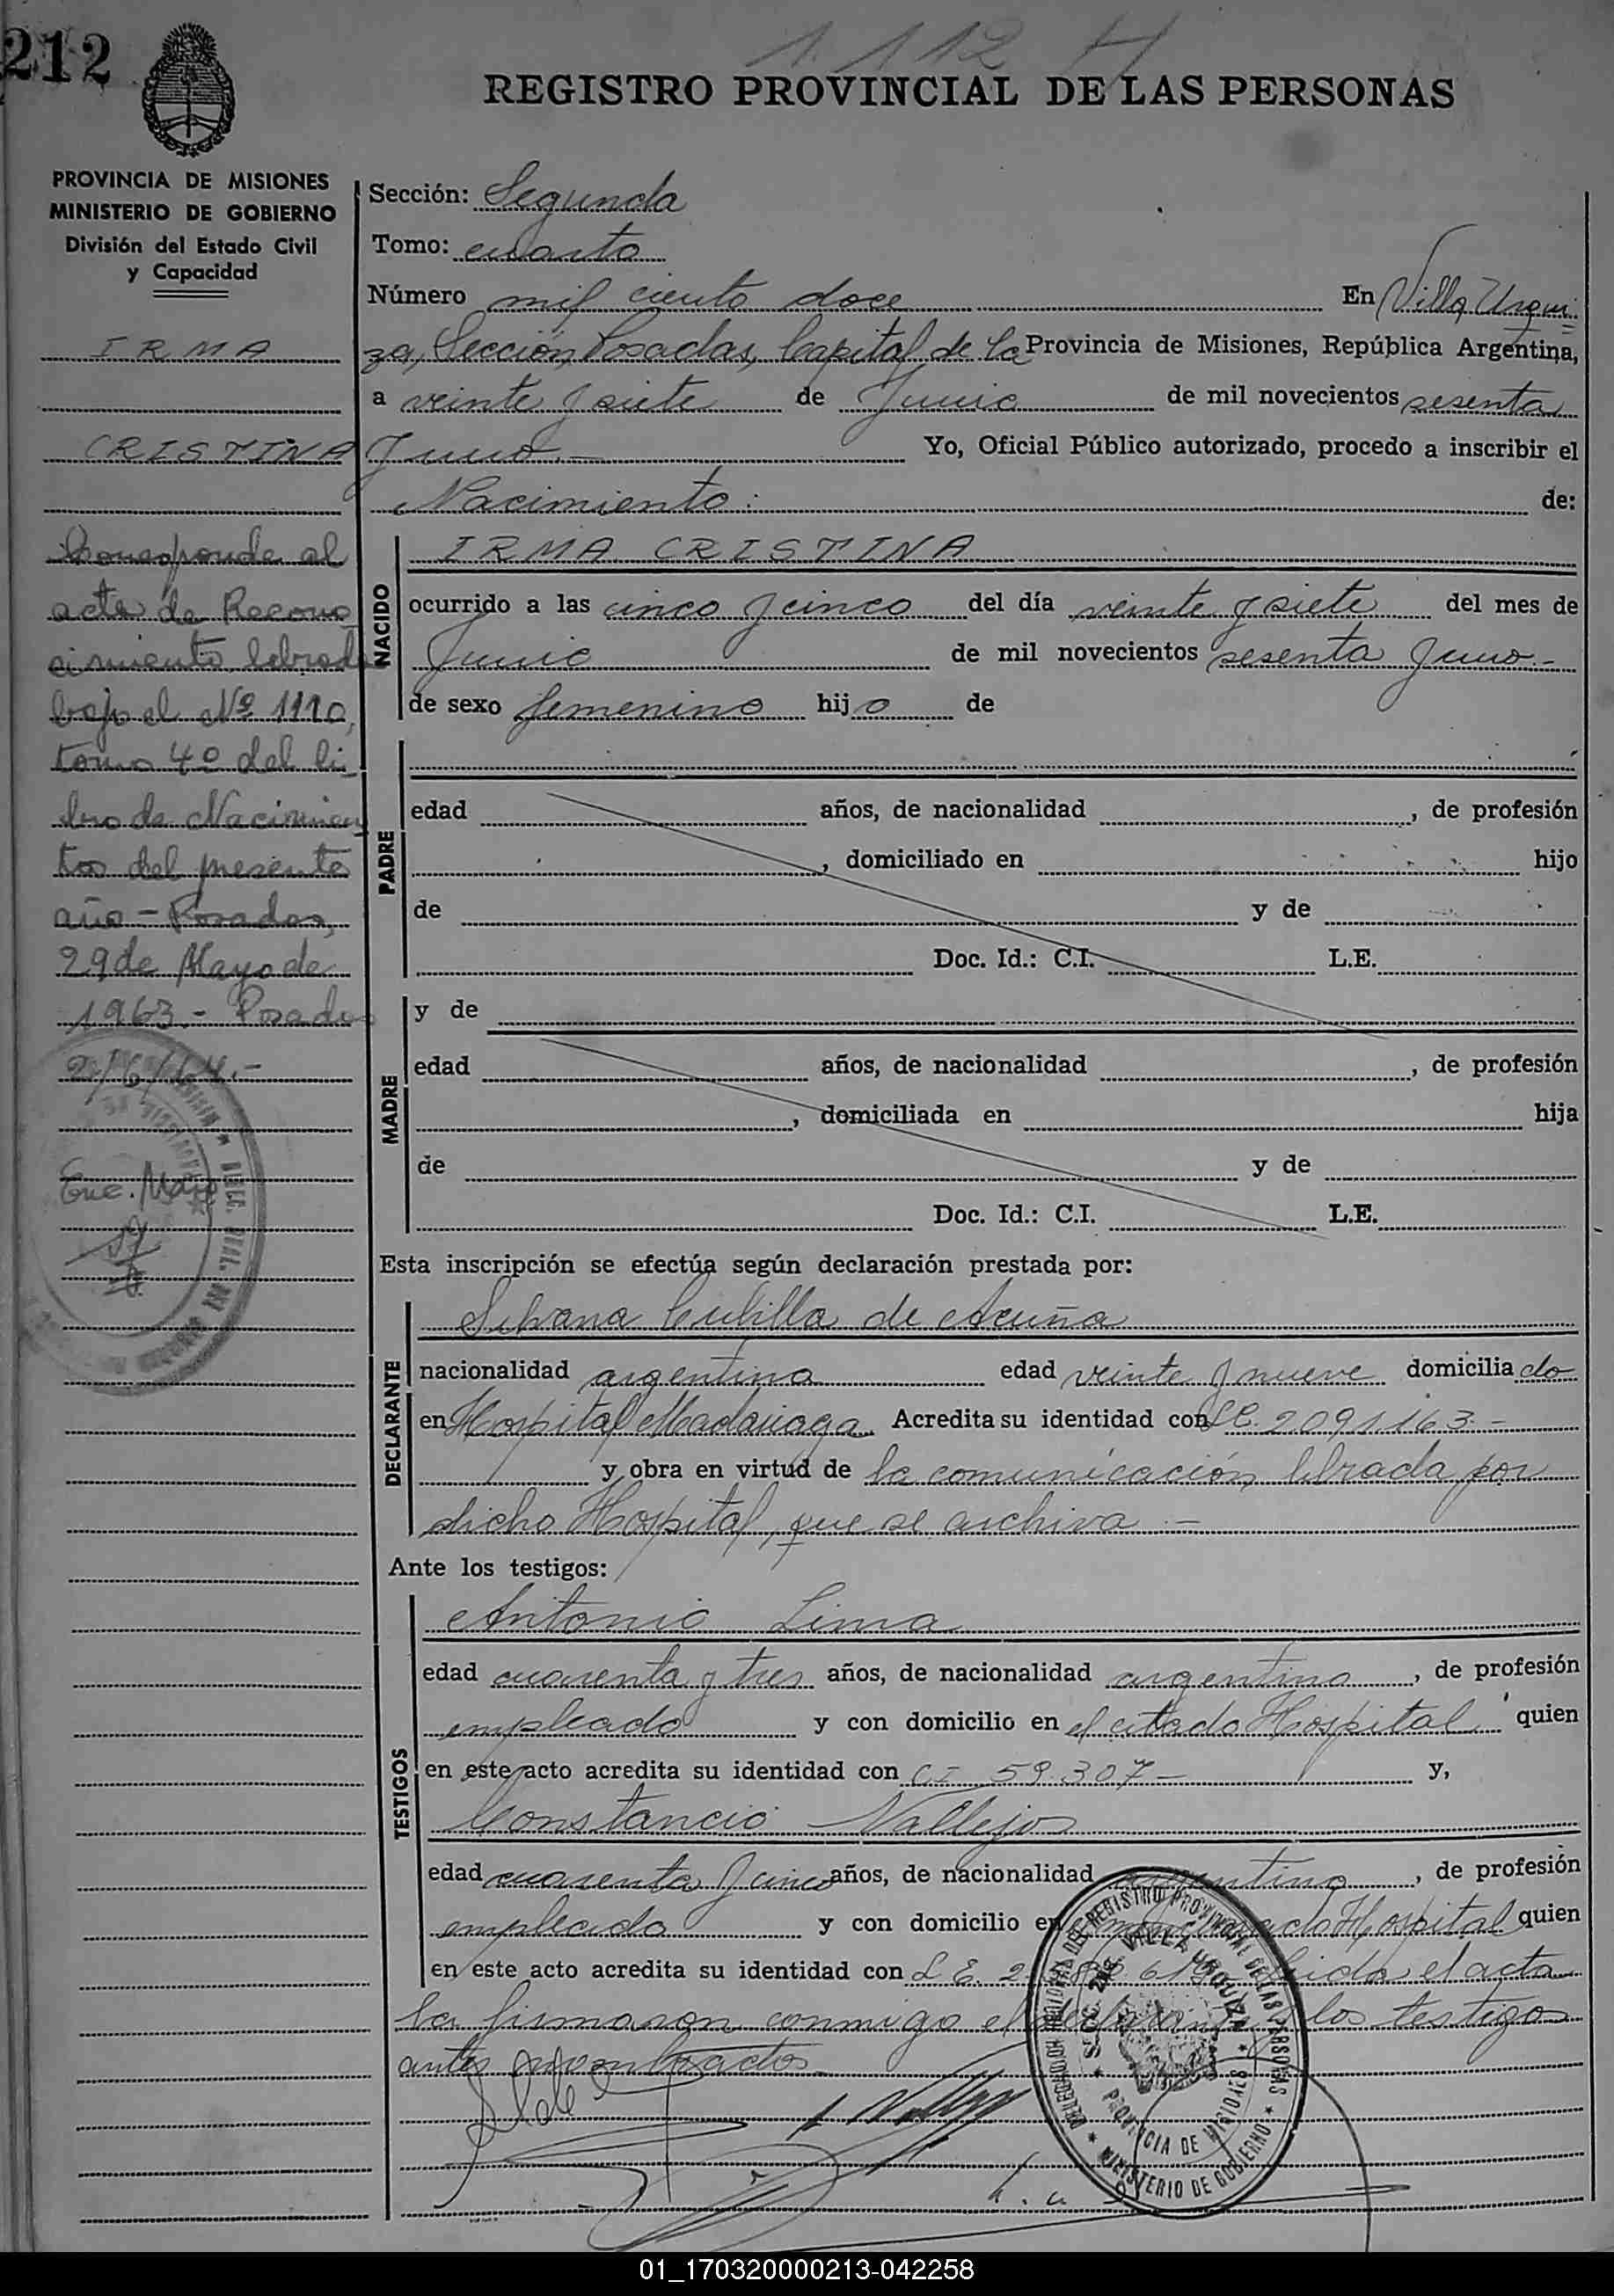 212
1.112 H
REGISTRO PROVINCIAL DE LAS PERSONAS
PROVINCIA DE MISIONES
MINISTERIO DE GOBIERNO
División del Estado Civil
y Capacidad
IRMA
CRISTINA
Corresponde al
acta de Recono
cimiento labrad
bajo el Nº 1110,
tomo 4º del li-
bro de Nacimien
tos del presente
año - Posadas,
29 de Mayo de
1963.- Posadas
2/6/64.-
Sección: Segunda
Tomo: cuarto
Número mil ciento doce En Villa Urqui
za, Sección Posadas, Capital de la Provincia de Misiones, República Argentina,
a veinte y siete de Junio de mil novecientos sesenta
y uno.- Yo, Oficial Público autorizado, procedo a inscribir el
Nacimiento: de:
NACIDO
IRMA CRISTINA
ocurrido a las cinco y cinco del día veinte y siete del mes de
Junio de mil novecientos sesenta y uno.-
de sexo femenino hijo de
PADRE
edad años, de nacionalidad , de profesión
, domiciliado en hijo
de y de
Doc. Id.: C.I. L.E.
MADRE
y de
edad años, de nacionalidad , de profesión
, domiciliada en hija
de y de
Doc. Id.: C.I. L.E.
Esta inscripción se efectúa según declaración prestada por:
DECLARANTE
Silvana Cubilla de Acuña
nacionalidad argentina edad veinte y nueve domiciliado
en Hospital Madariaga Acredita su identidad con LC. 2091163.-
y obra en virtud de la comunicación librada por
dicho Hospital, que se archiva.-
Ante los testigos:
TESTIGOS
Antonio Lima
edad cuarenta y tres años, de nacionalidad argentino, de profesión
empleado y con domicilio en el citado Hospital quien
en este acto acredita su identidad con CI 59.307- y,
Constancio Vallejos
edad cuarenta y cinco años, de nacionalidad argentino, de profesión
empleado y con domicilio en Hospital quien
en este acto acredita su identidad con L E. el acta
la firmaron conmigo el declarante y los testigos
antes nombrados
REGISTRO PROVINCIAL DE LAS PERSONAS
SECC. 2da. VILLA URQUIZA
PROVINCIA DE MISIONES
MINISTERIO DE GOBIERNO
01_170320000213-042258